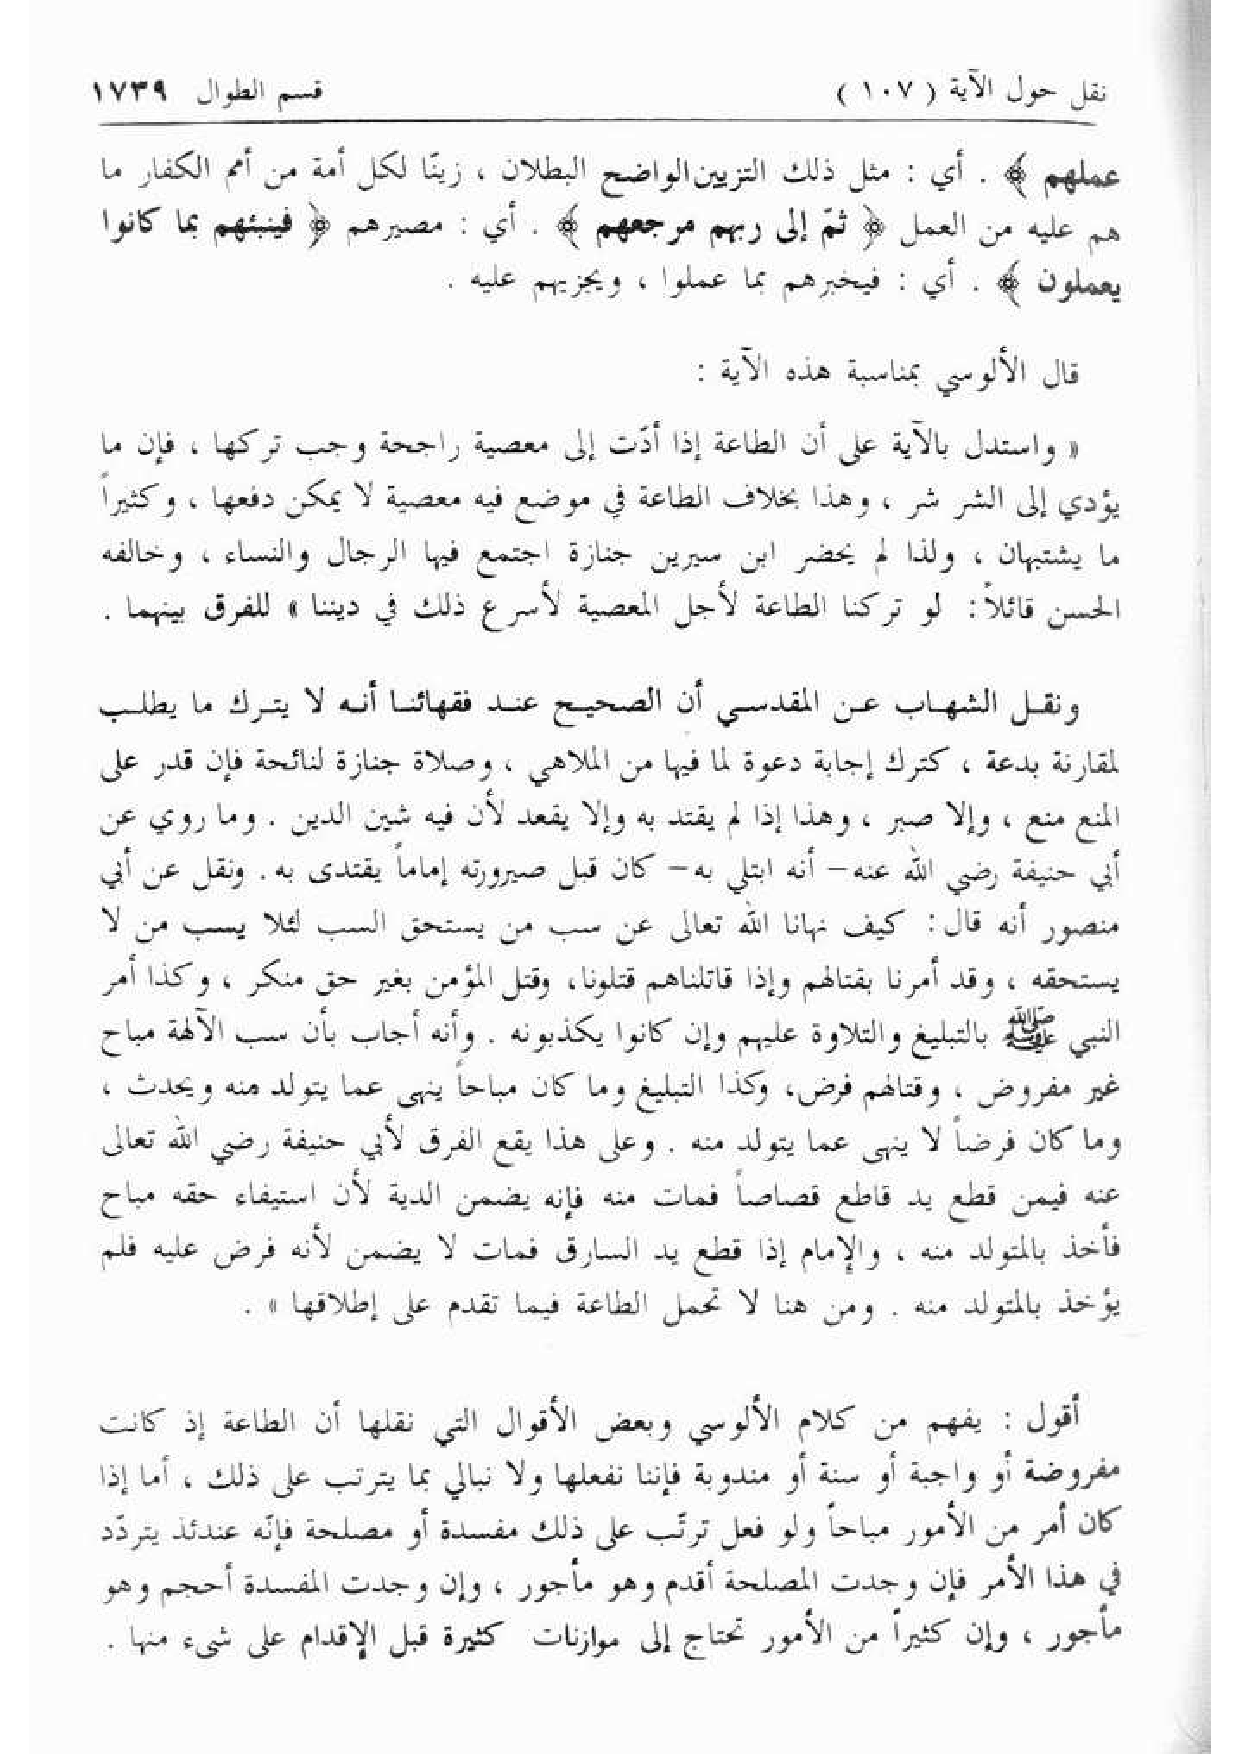 نقل حول الآية ( ١٠٧ )
قسم الطوال ١٧٣٩
عملهم ﴾ . أي : مثل ذلك التزيين الواضح البطلان ، زينّا لكل أمة من أمم الكفار ما
هم عليه من العمل ﴿ ثمّ إلى ربهم مرجعهم ﴾ . أي : مصيرهم ﴿ فينبئهم بما كانوا
يعملون ﴾ . أي : فيخبرهم بما عملوا ، ويجزيهم عليه .
قال الألوسي بمناسبة هذه الآية :
« واستدل بالآية على أن الطاعة إذا أدّت إلى معصية راجحة وجب تركها ، فإن ما
يؤدي إلى الشر شر ، وهذا بخلاف الطاعة في موضع فيه معصية لا يمكن دفعها ، وكثيراً
ما يشتبهان ، ولذا لم يحضر ابن سيرين جنازة اجتمع فيها الرجال والنساء ، وخالفه
الحسن قائلاً : لو تركنا الطاعة لأجل المعصية لأسرع ذلك في ديننا » للفرق بينهما .
ونقل الشهاب عن المقدسي أن الصحيح عند فقهائنا أنه لا يترك ما يطلب
لمقارنة بدعة ، كترك إجابة دعوة لما فيها من الملاهي ، وصلاة جنازة لنائحة فإن قدر على
المنع منع ، وإلا صبر ، وهذا إذا لم يقتد به وإلا يقعد لأن فيه شين الدين . وما روي عن
أبي حنيفة رضي الله عنه – أنه ابتلي به – كان قبل صيرورته إماماً يقتدى به . ونقل عن أبي
منصور أنه قال : كيف نهانا الله تعالى عن سب من يستحق السب لئلا يسب من لا
يستحقه ، وقد أمرنا بقتالهم وإذا قاتلناهم قتلونا ، وقتل المؤمن بغير حق منكر ، وكذا أمر
النبي ﷺ بالتبليغ والتلاوة عليهم وإن كانوا يكذبونه . وأنه أجاب بأن سب الآلهة مباح
غير مفروض ، وقتالهم فرض ، وكذا التبليغ وما كان مباحاً ينهى عما يتولد منه ويحدث ،
وما كان فرضاً لا ينهى عما يتولد منه . وعلى هذا يقع الفرق لأبي حنيفة رضي الله تعالى
عنه فيمن قطع يد قاطع قصاصاً فمات منه فإنه يضمن الدية لأن استيفاء حقه مباح
فأخذ بالمتولد منه ، والإمام إذا قطع يد السارق فمات لا يضمن لأنه فرض عليه فلم
يؤخذ بالمتولد منه . ومن هنا لا تحمل الطاعة فيما تقدم على إطلاقها » .
أقول : يفهم من كلام الألوسي وبعض الأقوال التي نقلها أن الطاعة إذ كانت
مفروضة أو واجبة أو سنة أو مندوبة فإننا نفعلها ولا نبالي بما يترتب على ذلك ، أما إذا
كان أمر من الأمور مباحاً ولو فعل ترتّب على ذلك مفسدة أو مصلحة فإنّه عندئذ يتردّد
في هذا الأمر فإن وجدت المصلحة أقدم وهو مأجور ، وإن وجدت المفسدة أحجم وهو
مأجور ، وإن كثيراً من الأمور تحتاج إلى موازنات كثيرة قبل الإقدام على شيء منها .